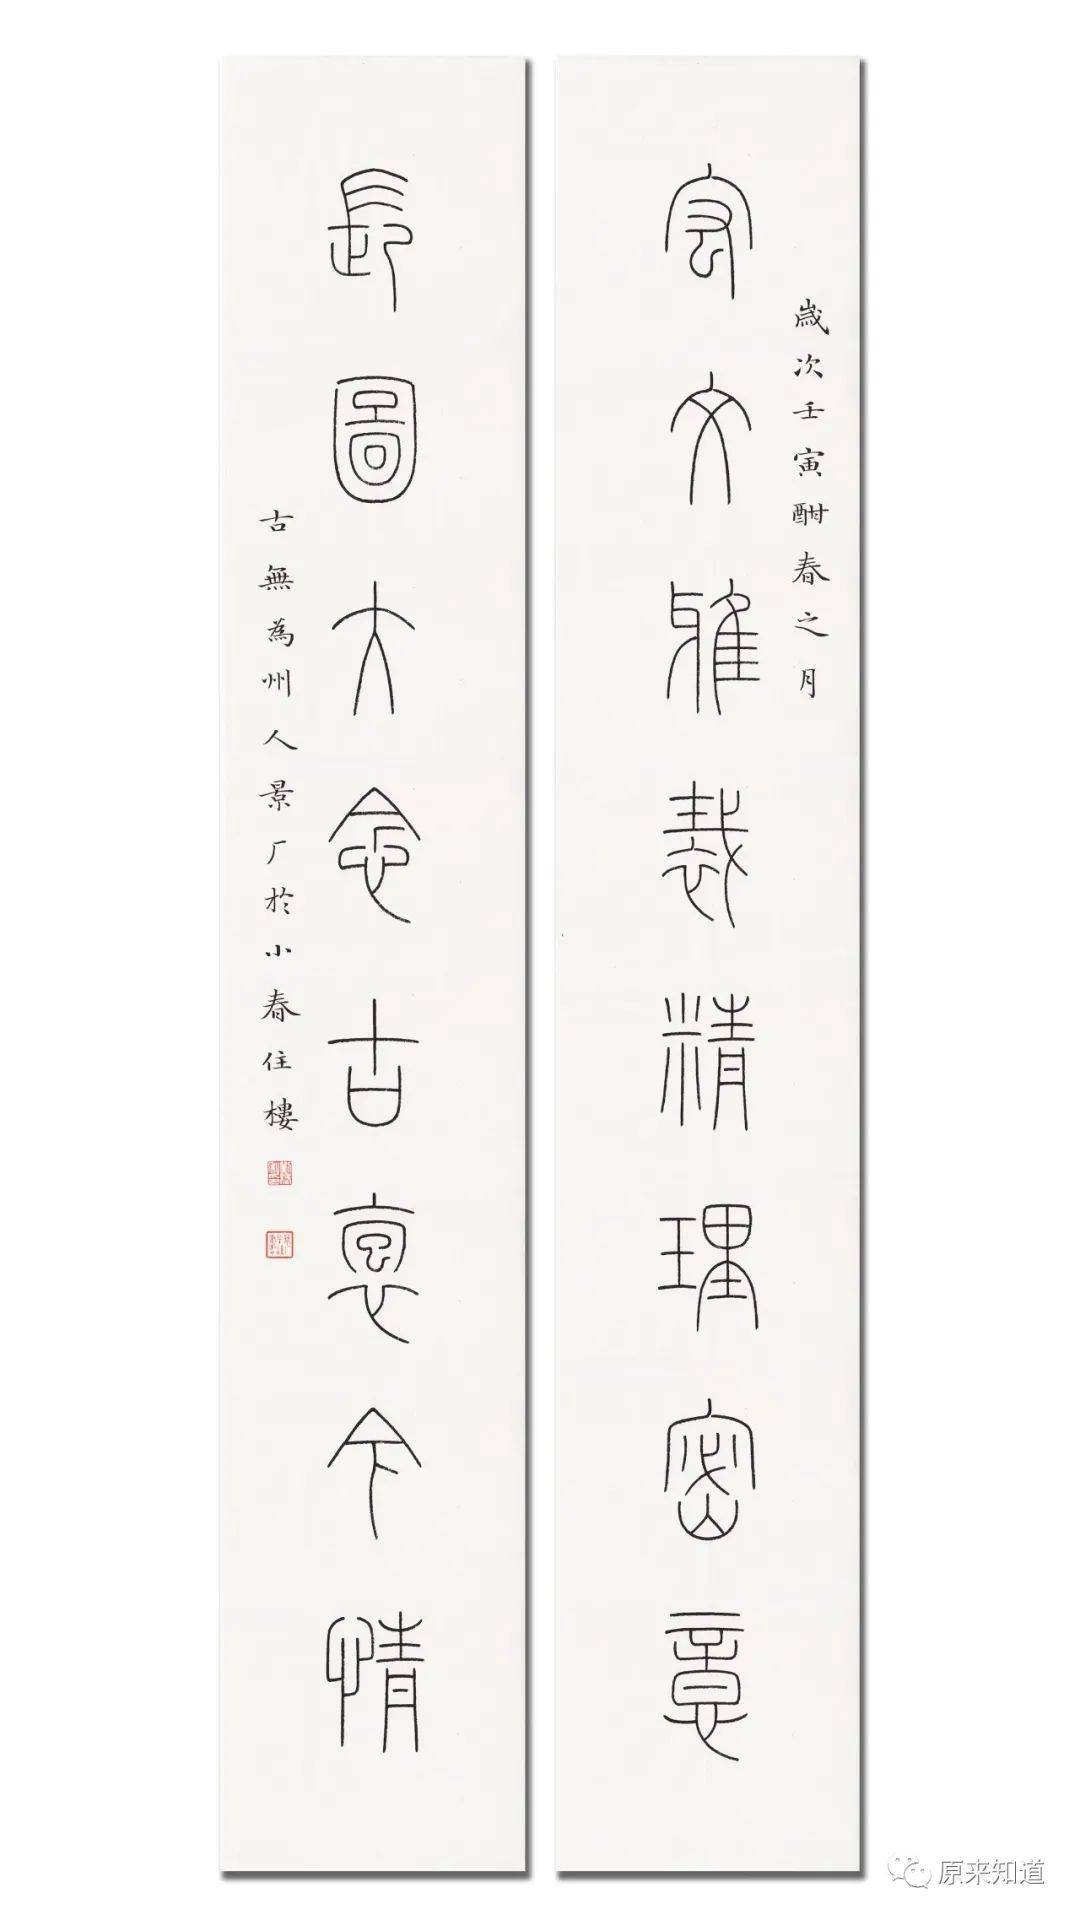 歲次壬寅酣春之月
宏文雅裁精理密意
長圖大念古今情
古無為州人景厂於小春住樓
原来知道